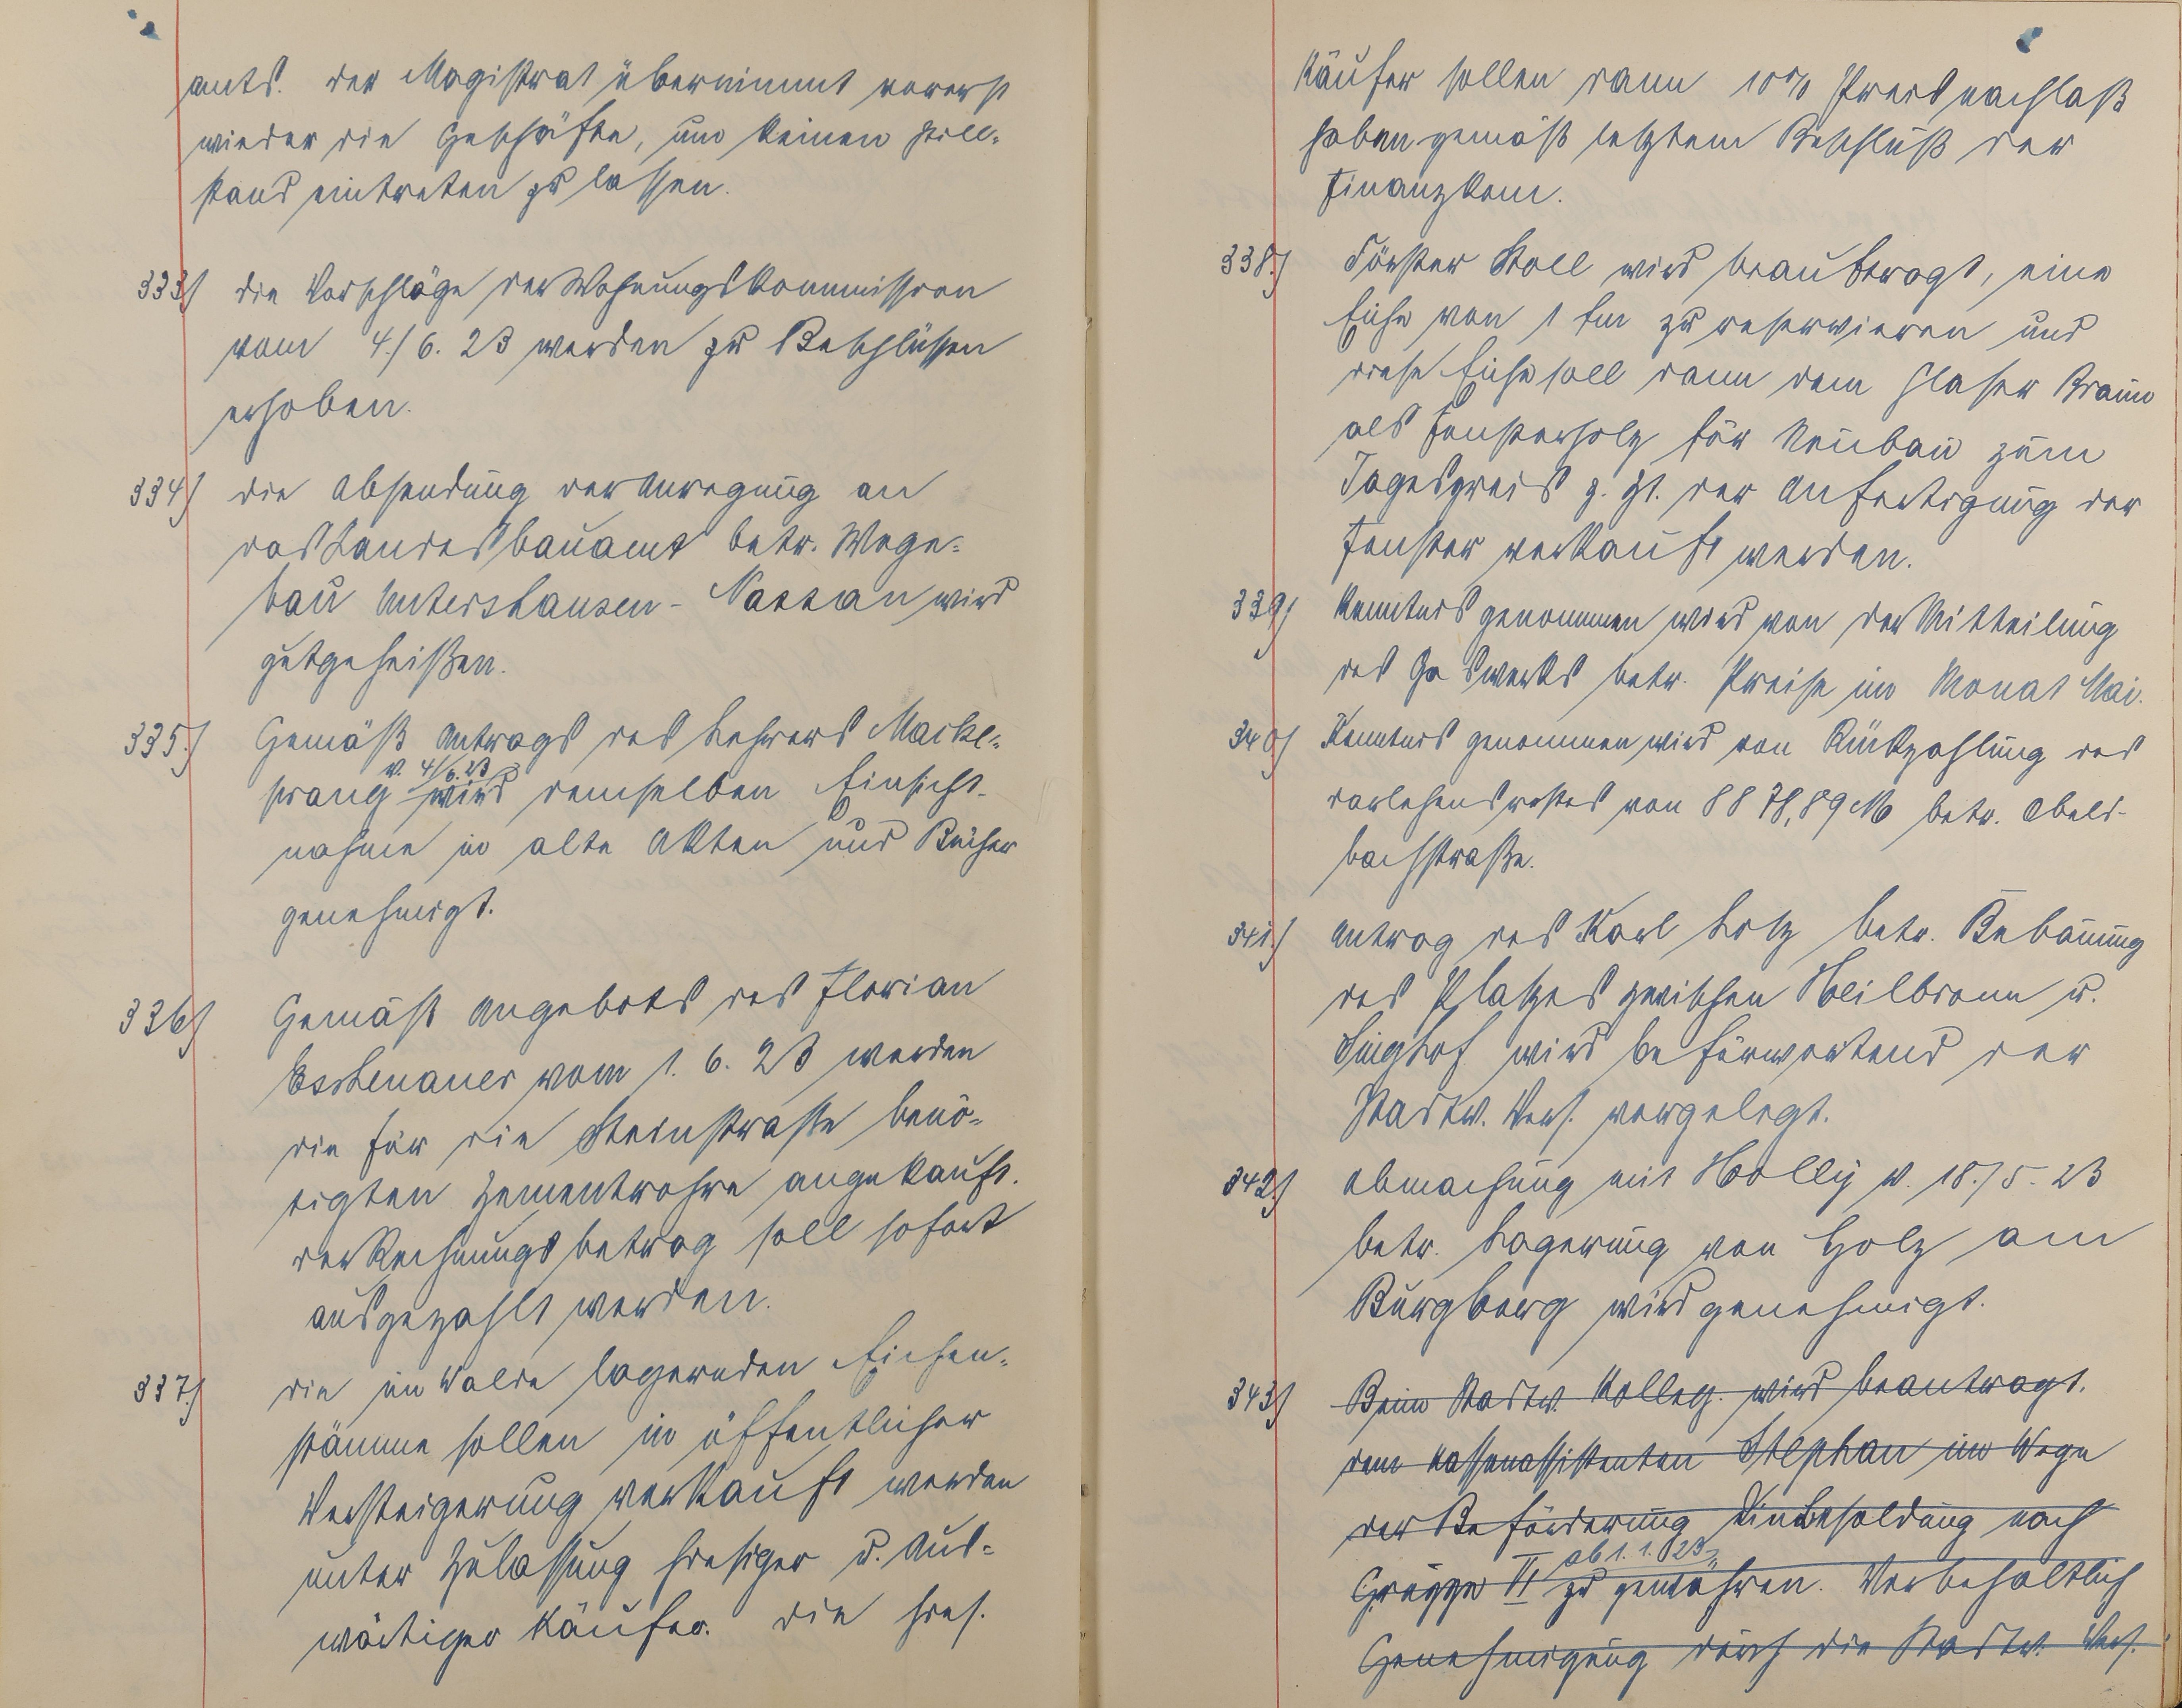 amts. der Magistrat übernimmt vorerst
wieder die Geschäfte, um keinen Still-
stand eintreten zu lassen.
333) die Vorschläge der Wohnungskommission
vom 4./6. 23 werden zu Beschlüssen
erhoben.
334) die Absendung der Anregung an
das Landesbauamt betr. Wege-
bau Untershausen - Nassau wird
gutgeheißen.
335.) Gemäß Antrags des Lehrers Mackel-
prang v. 4/6. 23 wird demselben Einsicht-
nahme in alte Akten und Bücher
genehmigt.
336) Gemäß Angebots des Florian
Esstenauer vom 1. 6. 23 werden
die für die Steinstraße benö-
tigten Zementrohre angekauft.
der Rechnungsbetrag soll sofort
ausgezahlt werden.
337.) die im Walde lagernden Eichen-
stämme sollen in öffentlicher
Versteigerung verkauft werden
unter Zulassung hiesiger u. Aus-
wärtiger Käufer. die hies.
Käufer sollen dann 10% Preisnachlaß
haben gemäß letztem Beschluß der
Finanzkom.
338.) Förster Stoll wird beauftragt, eine
Eiche von 1 fm zu reservieren und
diese Eiche soll dann dem Glaser Braun
als Fensterholz für Neubau zum
Tagespreis z. Zt. der Anfertigung der
Fenster verkauft werden.
339) Kenntnis genommen wird von der Mitteilung
des Gaswerks betr. Preise im Monat Mai.
340) Kenntnis genommen wird von Rückzahlung des
darlehensrestes von 8878,89 M betr. Obels-
bachstraße.
341.) Antrag des Karl Lotz betr. Bebauung
des Platzes zwischen Heilbronn u.
Singhof wird befürwortend der
Stadtv. Vers. vorgelegt.
342.) Abmachung mit Holly v. 18./5. 23
betr. Lagerung von Holz am
Burgberg wird genehmigt.
343) Beim Stadtv. Kolleg. wird beantragt.
dem Kassenassistenten Stephan im Wege
der Beförderung Einbesoldung nach
Gruppe VI ab 1. 1. 23 zu gewähren. Vorbehaltlich
Genehmigung durch die Stadtv. Vers.